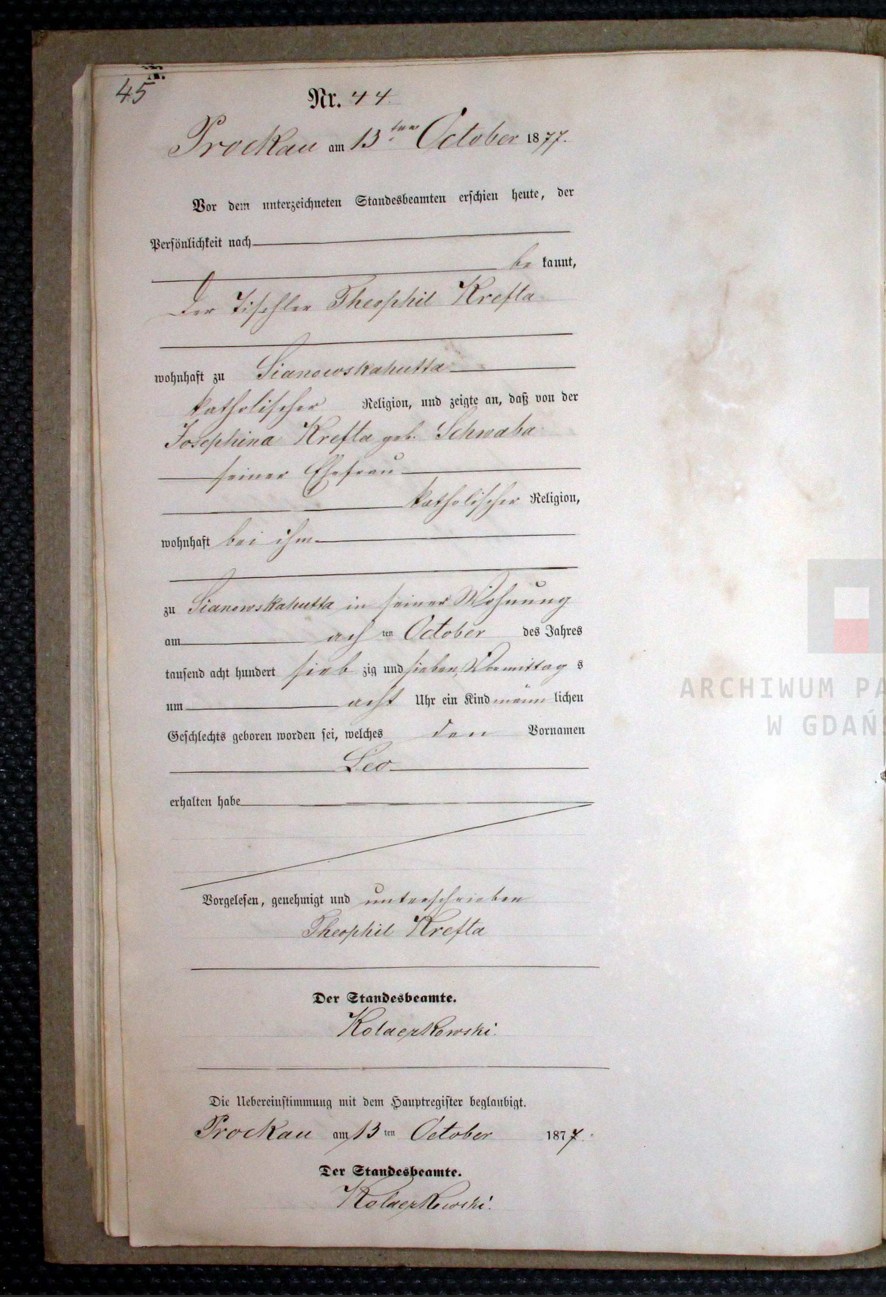 45
Nr. 44
Prockau am 13 ten October 1877.
Vor dem unterzeichneten Standesbeamten erschien heute, der
Persönlichkeit nach
be kannt,
Der Tischler Theophil Krefta
wohnhaft zu Sianowskahutta
katholischer Religion, und zeigte an, daß von der
Josephina Krefta geb. Schwaba
seiner Ehefrau
katholischer Religion,
wohnhaft bei ihm
zu Sianowskahutta in seiner Wohnung
am ach ten October des Jahres
tausend acht hundert sieb zig und sieben Vormittag s
um acht Uhr ein Kind männ lichen
Geschlechts geboren worden sei, welches den Vornamen
Leo
erhalten habe
Vorgelesen, genehmigt und unterschrieben
Theophil Krefta
Der Standesbeamte.
Kolaczkowski
Die Uebereinstimmung mit dem Hauptregister beglaubigt.
Prockau am 13 ten October 1877.
Der Standesbeamte.
Kolaczkowski.
ARCHIWUM PA
W GDAŃS